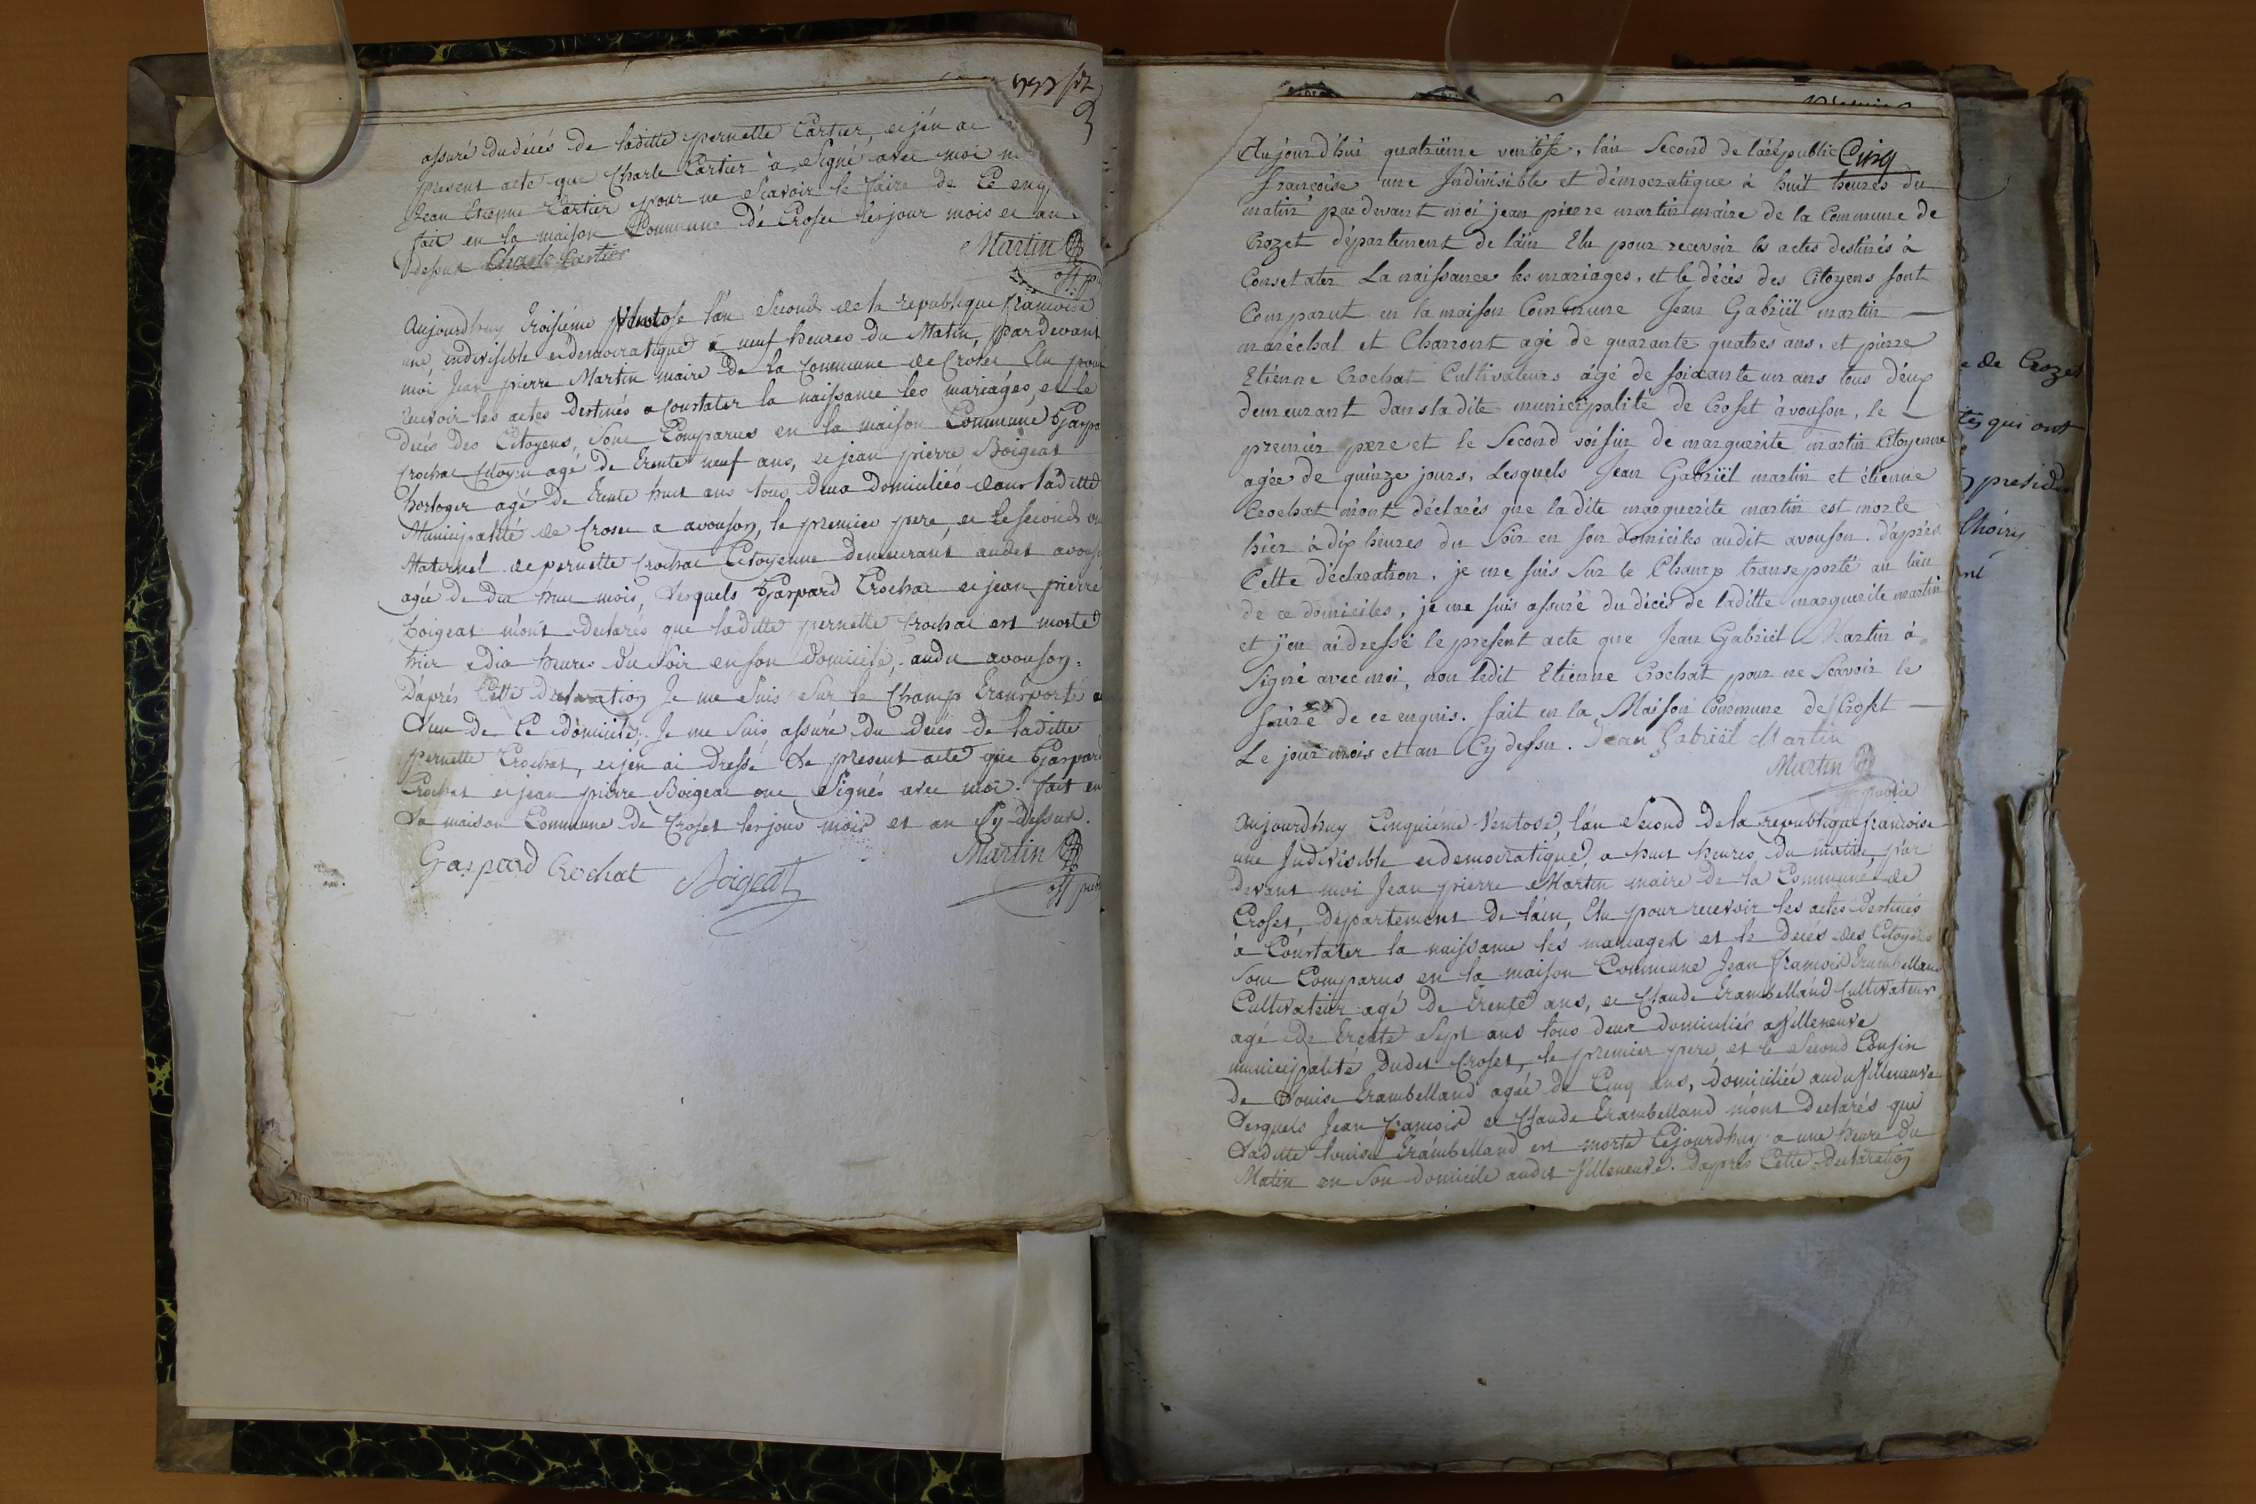 assuré du décés de laditte pernette Cartier, et jén ai
present acte que Charle Cartier à Signé avec moi
Jean Etienne Cartier pour ne Scavoir le faire de ce enq
fait en la maison Commune dé Croset les jour mois et an
dessus Charle Cartier
Martin
off pu
Aujourdhuy troisiéme Ventose l'an Second de la republique francoise
une, indivisible et democratique à neuf heures du Matin, pardevant
moi Jean pierre Martin maire de la Commune de Croset Elu pour
recevoir les actes destinés a Constater la naissance les mariáges, et le
decés des Citoyens, Sont Comparus en la maison Commune Gaspa
Crochat Citoyen agé de trente neuf ans, et jean pierre Boigeat
horloger agé de trente huit ans tous deux domiciliés dans laditte
Municipalité de Croset a avouson, le premier pere, et le Second on
Maternel de pernette Crochat Citoyenne demeurant audit avous
agée de dix huit mois, Lesquels Gaspard Crochat et jean pierre
boigeat m'ont declarés que laditte pernette Crochat est morte
hier a dix heures du Soir en son domicile, audit avouson.
Dáprés Cette declaration Je me Suis Sur le Champ transporté a
Lieu de Ce domicile, Je me Suis assuré du décés de laditte
pernette Crochat, et jén ai dressé Le present acte que Gaspard
Crochat et jean pierre Boigeat ont Signés avec moi. fait en
La maison Commune de Croset les jour mois et an Cy dessus.
Gaspard Crochat Boigeat Martin
off pub
Cinq
Aujourd'hui quatriéme ventôse, l'an Second de la république
françoise une Indivisible et démocratique à huit heures du
matin par devant moi jean pierre martin maire de la Commune de
Crozet département de l'ain Elu pour recevoir les actes destinés à
Consetater La naissance les mariages, et le décès des Citoyens sont
Comparut en la maison Commune Jean Gabriël martin
maréchal et Charront agé de quarante quatres ans, et pierre
Etienne Crochat Cultivateurs ágé de soixante un ans tous déux
demeurant dans la dite municipalité de Croset à vouson, le
premier pere et le Second voisin de marguerite martin Citoyenne
agée de quinze jours, Lesquels Jean Gabriël martin et étienne
Crochat m'ont déclarés que la dite marguerite martin est morte
hier à dix heures du Soir en son domiciles audit avouson. d'aprés
Cette déclaration, je me suis Sur le Champ transeporté au lieu
de ce domiciles, je me suis assuré du décés de laditte marguerite martin
et j'en ai dressé le present acte que Jean Gabriel Martin à
Signé avec moi, non ledit Etienne Crochat pour ne Scavoir le
faire de ce enquis. fait en la Maison Commune de Croset
Le jour mois et an Cy dessu. Jean Gabriël Martin
Martin
off public
Aujourdhuy Cinquiéme Ventose, l'an Second de la republique francoise
une Indivisible et democratique, a huit heures du matin, par
Devant moi Jean pierre Martin maire de la Commune de
Croset, Département de l'ain, Elu pour recevoir les actes destinés
à Constater la naissance les mariages et le decés des Citoyens
Sont Comparus en la maison Commune Jean francois trambelland
Cultivateur agé de trente ans, et Claude trambelland Cultivateur
agé de trente Sept ans tous deux domiciliés a Villeneuve
municipalité dudit Croset, le premier pere, et le Second Cousin
de Louise trambelland agée de Cinq ans, domiciliée audit Villeneuve
Lesquels Jean francois et Claude trambelland m'ont declarés que
Laditte louise trambelland est morte Cejourdhuy a une heure du
Matin en Son domicile audit Villeneuve. Daprés Cette declaration
e de Crozet
tes qui ont
preside
Choiry